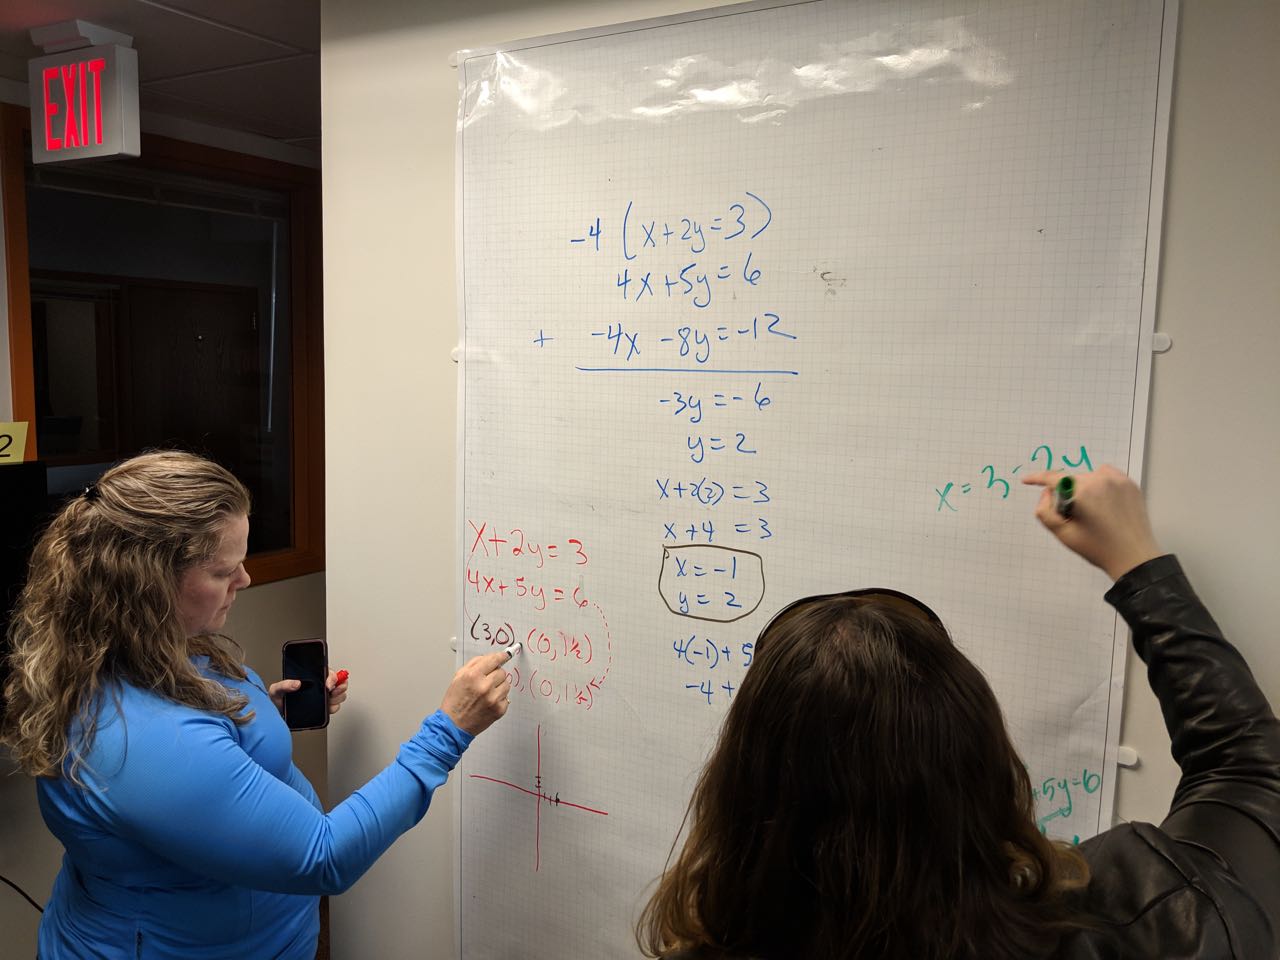 EXIT
2
-4 (x+2y=3)
4x+5y=6
+ -4x -8y=-12
-3y=-6
y=2
x+2(2)=3
x+4=3
x=-1
y=2
4(-1)+5
-4+
x+2y=3
4x+5y=6
(3,0), (0,1½)
), (0,1
x=3-2y
+5y=6